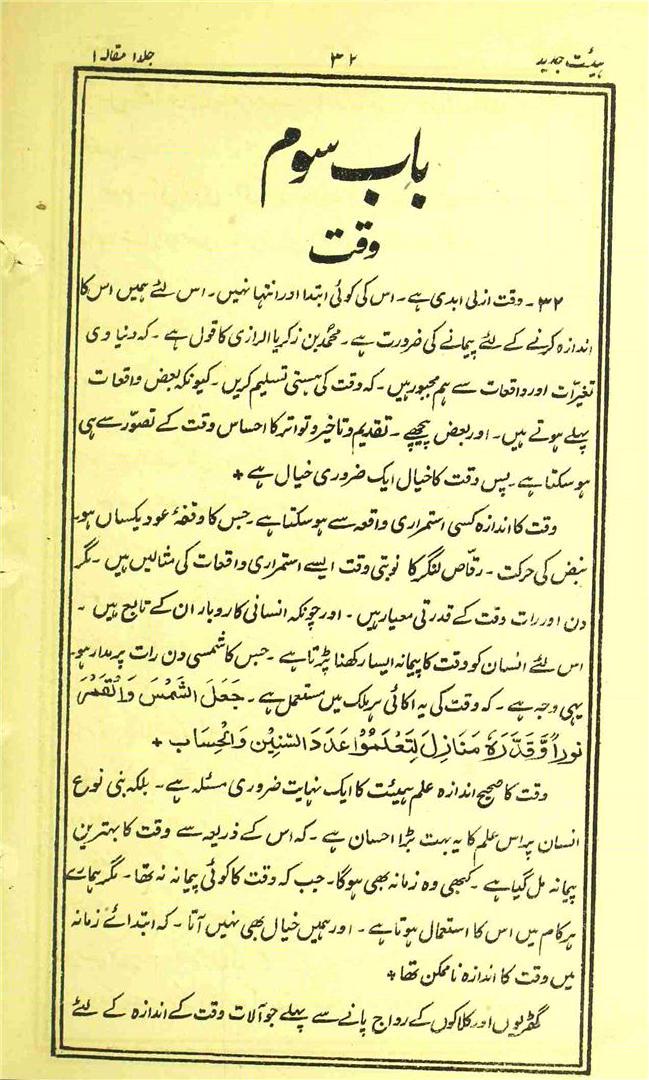 ہیئت جدید ۳۲ جلد۱ مقالہ ۱
باب سوم
وقت
۳۲ ۔ وقت ازلی ابدی ہے ۔ اس کی کوئی ابتدا اور انتہا نہیں ۔ اس لئے ہمیں اس کا
اندازہ کرنے کے لئے پیمانے کی ضرورت ہے ۔ محمدؐ بن زکریا الرازی کا قول ہے ۔ کہ دنیا وی
تغیرّات اور واقعات سے ہم مجبور ہیں ۔ کہ وقت کی ہستی تسلیم کریں ۔ کیونکہ بعض واقعات
پہلے ہوتے ہیں ۔ اور بعض پیچھے ۔ تقدیم و تاخیر و تواتر کا احساس وقت کے تصوّر سے ہی
ہو سکتا ہے ۔ پس وقت کا خیال ایک ضروری خیال ہے +
وقت کا اندازہ کسی استمراری واقعہ سے ہو سکتا ہے ۔ جس کا وقفۂ عود یکساں ہو۔
نبض کی حرکت ۔ رقّاص لنگر کا نوبتی وقت ایسے استمراری واقعات کی مثالیں ہیں ۔ مگر
دن اور رات وقت کے قدرتی معیار ہیں ۔ اور چونکہ انسانی کاروبار ان کے تابع ہیں ۔
اس لئے انسان کو وقت کا پیمانہ ایسا رکھنا پڑتا ہے ۔ جس کا شمسی دن رات پر مدار ہو۔
یہی وجہ ہے ۔ کہ وقت کی یہ اکائی ہر ملک میں مستعمل ہے ۔ جَعَلَ الشَّمْسَ وَالْقَمَرَ
نوراً وَّقَدَّرَہٗ مَنَازِلَ لِتَعْلَمُوْا عَدَدَ السِّنِیْنَ وَالْحِسَاب +
وقت کا صحیح اندازہ علم ہیئت کا ایک نہایت ضروری مسئلہ ہے ۔ بلکہ بنی نوع
انسان پر اس علم کا یہ بہت بڑا احسان ہے ۔ کہ اس کے ذریعہ سے وقت کا بہترین
پیمانہ مل گیا ہے ۔ کبھی وہ زمانہ بھی ہوگا ۔ جب کہ وقت کا کوئی پیمانہ نہ تھا ۔ مگر ہمارے
ہر کام میں اس کا استعمال ہوتا ہے ۔ اور ہمیں خیال بھی نہیں آتا ۔ کہ ابتدائے زمانہ
میں وقت کا اندازہ ناممکن تھا +
گھڑیوں اور کلاکوں کے رواج پانے سے پہلے جو آلات وقت کے اندازہ کے لئے